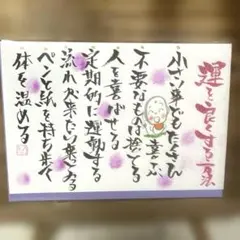 運を良くする一条
小さい事でもたくさん喜ぶ
不要なものは捨てる
人を喜ばせる
定期的に運動する
流れ文来たい葉となる
ペンと紙を持ち歩く
体を温める